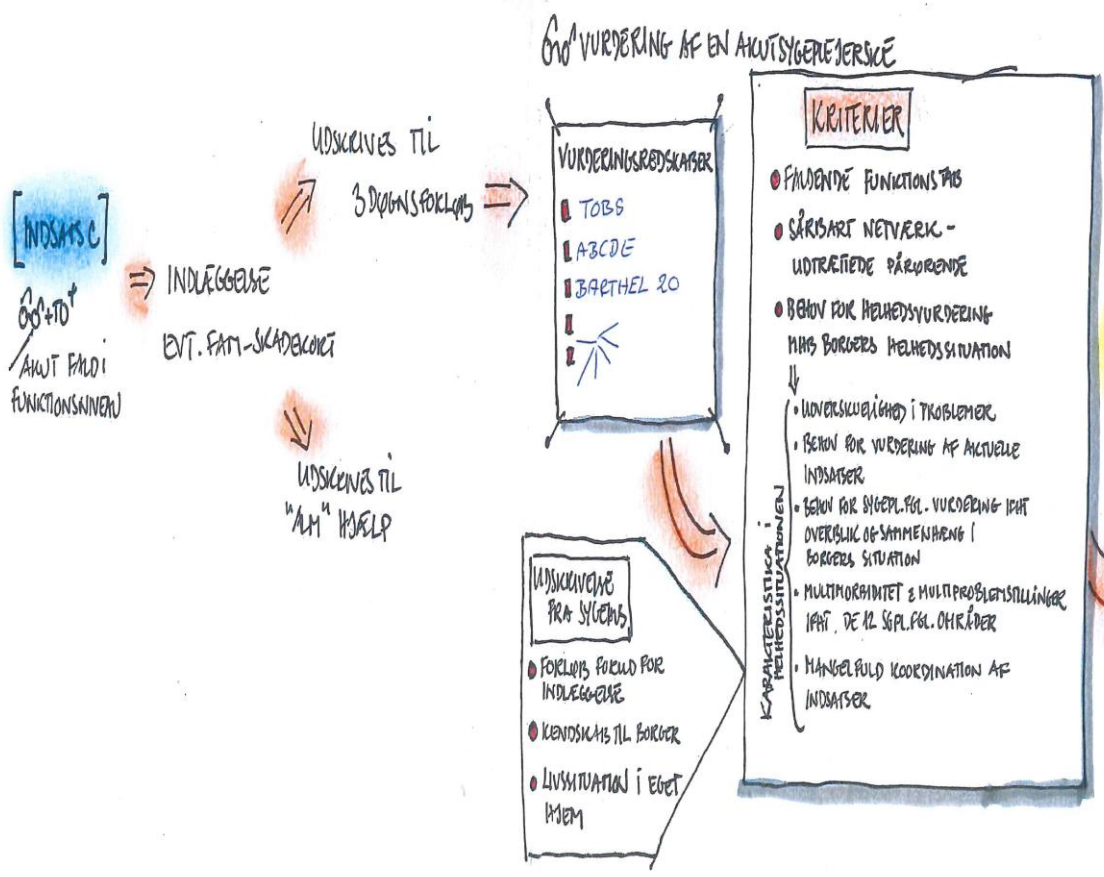 VURDERING AF EN AKUTSYGEPLEJERSKE
[INDSATS C]
+TD+
AKUT FALD I
FUNKTIONSNIVEAU
INDLÆGGELSE
EVT. FAM-SKADEKORT
UDSKRIVES TIL
3 DØGNSFORLØB
UDSKRIVES TIL
"ALM" HJÆLP
VURDERINGSREDSKABER
TOBS
ABCDE
BARTHEL 20
UDSKRIVELSE
FRA SYGEHUS
FORLØB FORUD FOR
INDLÆGGELSE
KENDSKAB TIL BORGER
LIVSSITUATION I EGET
HJEM
KRITERIER
FALDENDE FUNKTIONSTAB
SÅRBART NETVÆRK -
UDTRÆTTEDE PÅRØRENDE
BEHOV FOR HELHEDSVURDERING
MHB BORGERS HELHEDSSITUATION
KARAKTERISTIKA I
HELHEDSSITUATIONEN
• UOVERSKUELIGHED I PROBLEMER
• BEHOV FOR VURDERING AF AKTUELLE
INDSATSER
• BEHOV FOR SYGEPL.FGL. VURDERING IFHT
OVERBLIK OG SAMMENHÆNG I
BORGERS SITUATION
• MULTIMORBIDITET & MULTIPROBLEMSTILLINGER
IFHT. DE 12 SGPL.FGL. OMRÅDER
• MANGELFULD KOORDINATION AF
INDSATSER